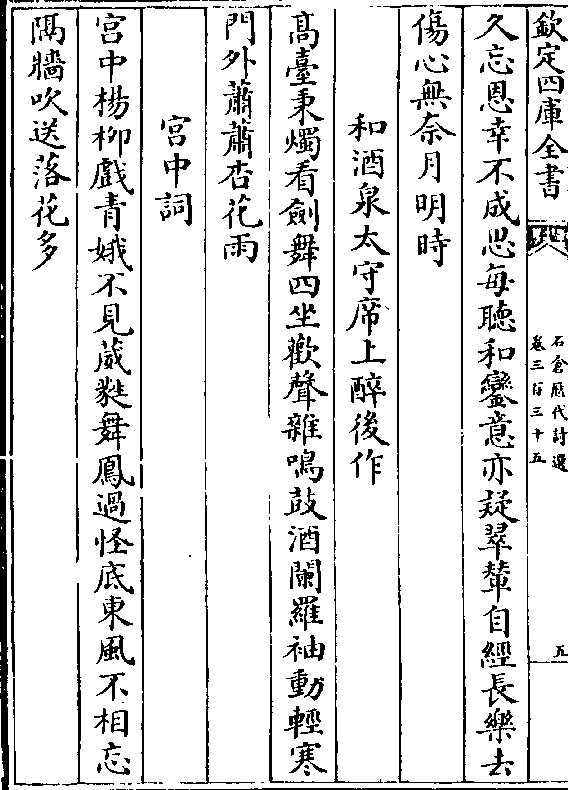 欽定四庫全書
石倉歷代詩選
卷三百三十五
五
久忘恩幸不成思每聽和鑾意亦疑翠輦自經長樂去
傷心無奈月明時
和酒泉太守席上醉後作
髙臺秉燭看劍舞四坐歡聲雜鳴鼓酒闌羅袖動輕寒
門外蕭蕭杏花雨
宮中詞
宮中楊柳戲青娥不見葳蕤舞鳳過怪底東風不相忘
隔牆吹送落花多